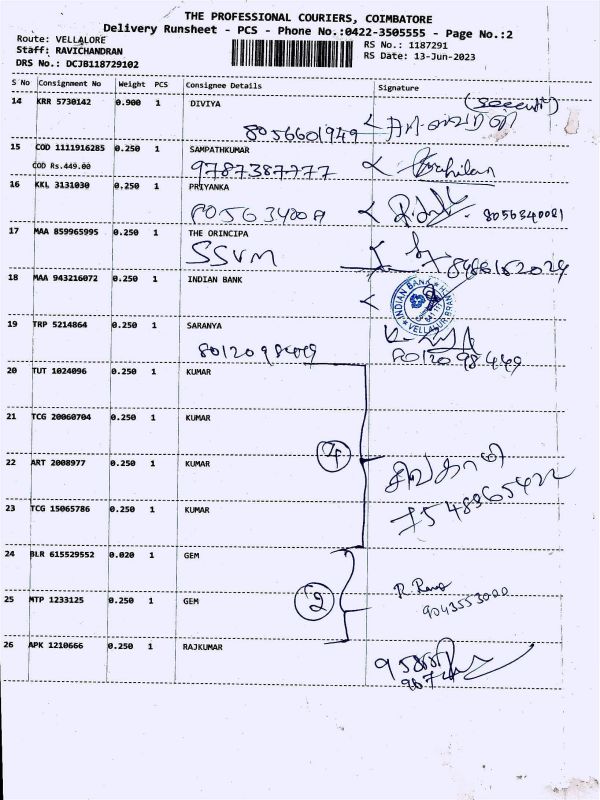 THE PROFESSIONAL COURIERS, COIMBATORE
Delivery Runsheet - PCS - Phone No.:0422-3505555 - Page No.:2
Route: VELLALORE
Staff: RAVICHANDRAN
DRS No.: DCJB118729102
RS No.: 1187291
RS Date: 13-Jun-2023
S No Consignment No Weight PCS Consignee Details Signature
14 KRR 5730142 0.900 1 DIVIYA
8056601949
15 COD 1111916285 0.250 1 SAMPATHKUMAR
COD Rs.449.00 9787387777
16 KKL 3131030 0.250 1 PRIYANKA
8056340021
17 MAA 859965995 0.250 1 THE ORINCIPA
SSVM
18 MAA 943216072 0.250 1 INDIAN BANK
INDIAN BANK
19 TRP 5214864 0.250 1 SARANYA
8012098449
20 TUT 1024096 0.250 1 KUMAR
21 TCG 20060704 0.250 1 KUMAR
4
22 ART 2008977 0.250 1 KUMAR
சிவகாமி
23 TCG 15065786 0.250 1 KUMAR
24 BLR 615529552 0.020 1 GEM
2
R. Rama
25 MTP 1233125 0.250 1 GEM
9043553000
26 APK 1210666 0.250 1 RAJKUMAR